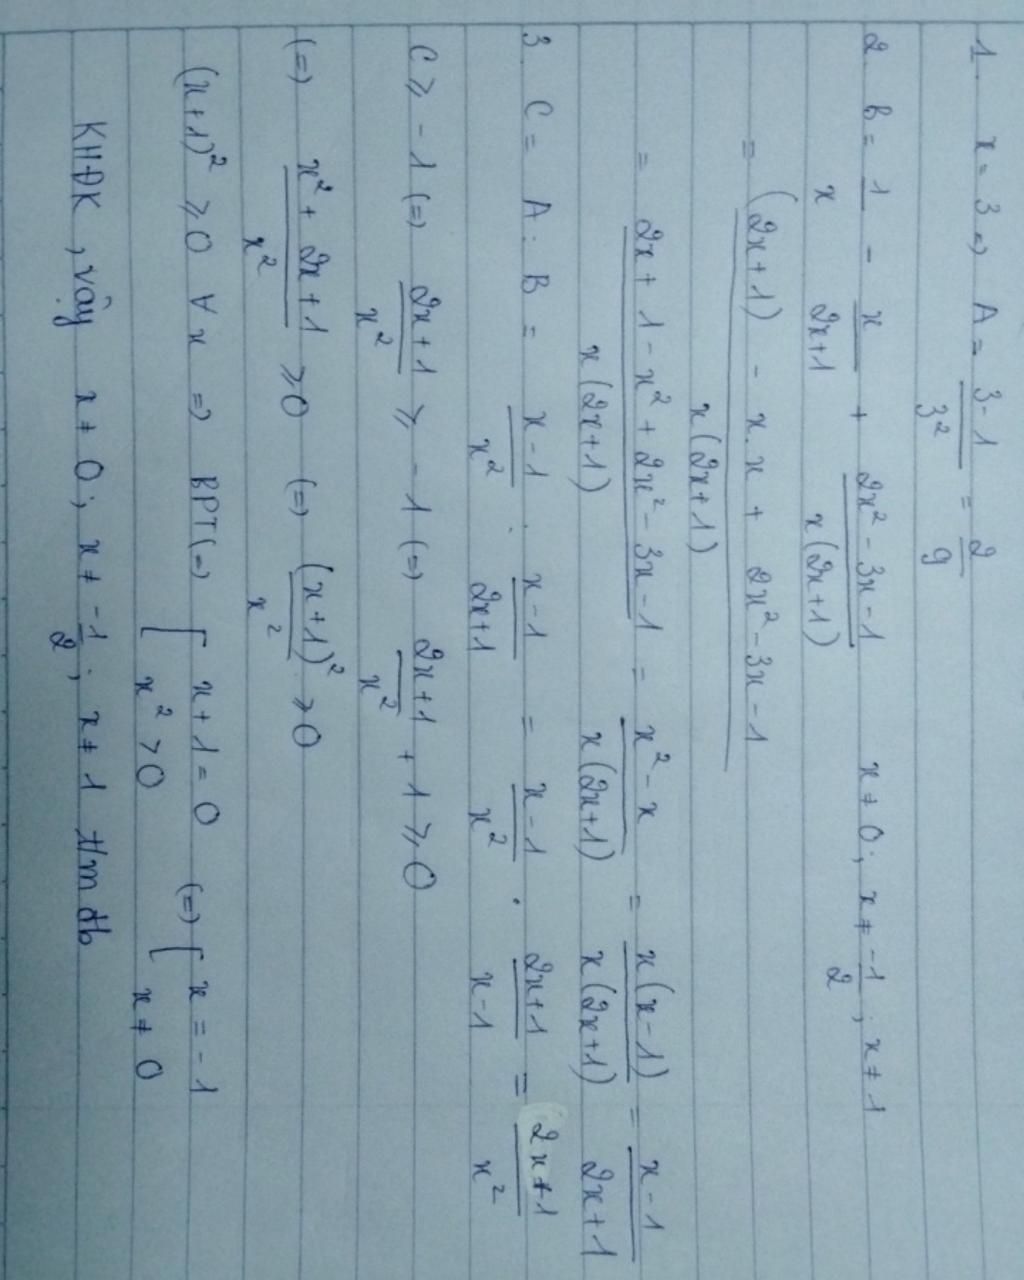 1. x = 3 => A = (3-1)/3² = 2/9
2. B = 1/x - x/(2x+1) + (2x² - 3x - 1)/(x(2x+1)) x ≠ 0; x ≠ -1/2; x ≠ 1
= ((2x+1) - x.x + 2x² - 3x - 1)/(x(2x+1))
= (2x + 1 - x² + 2x² - 3x - 1)/(x(2x+1)) = (x² - x)/(x(2x+1)) = (x(x-1))/(x(2x+1)) = (x-1)/(2x+1)
3. C = A : B = (x-1)/x² : (x-1)/(2x+1) = (x-1)/x² . (2x+1)/(x-1) = (2x+1)/x²
C ⩾ -1 (=) (2x+1)/x² ⩾ -1 (=) (2x+1)/x² + 1 ⩾ 0
(=) (x² + 2x + 1)/x² ⩾ 0 (=) (x+1)²/x² ⩾ 0
(x+1)² ⩾ 0 ∀ x => BPT (=) [ x + 1 = 0 ; x² > 0 (=) [ x = -1 ; x ≠ 0
KHĐK, vậy x ≠ 0; x ≠ -1/2; x ≠ 1 t/m đb